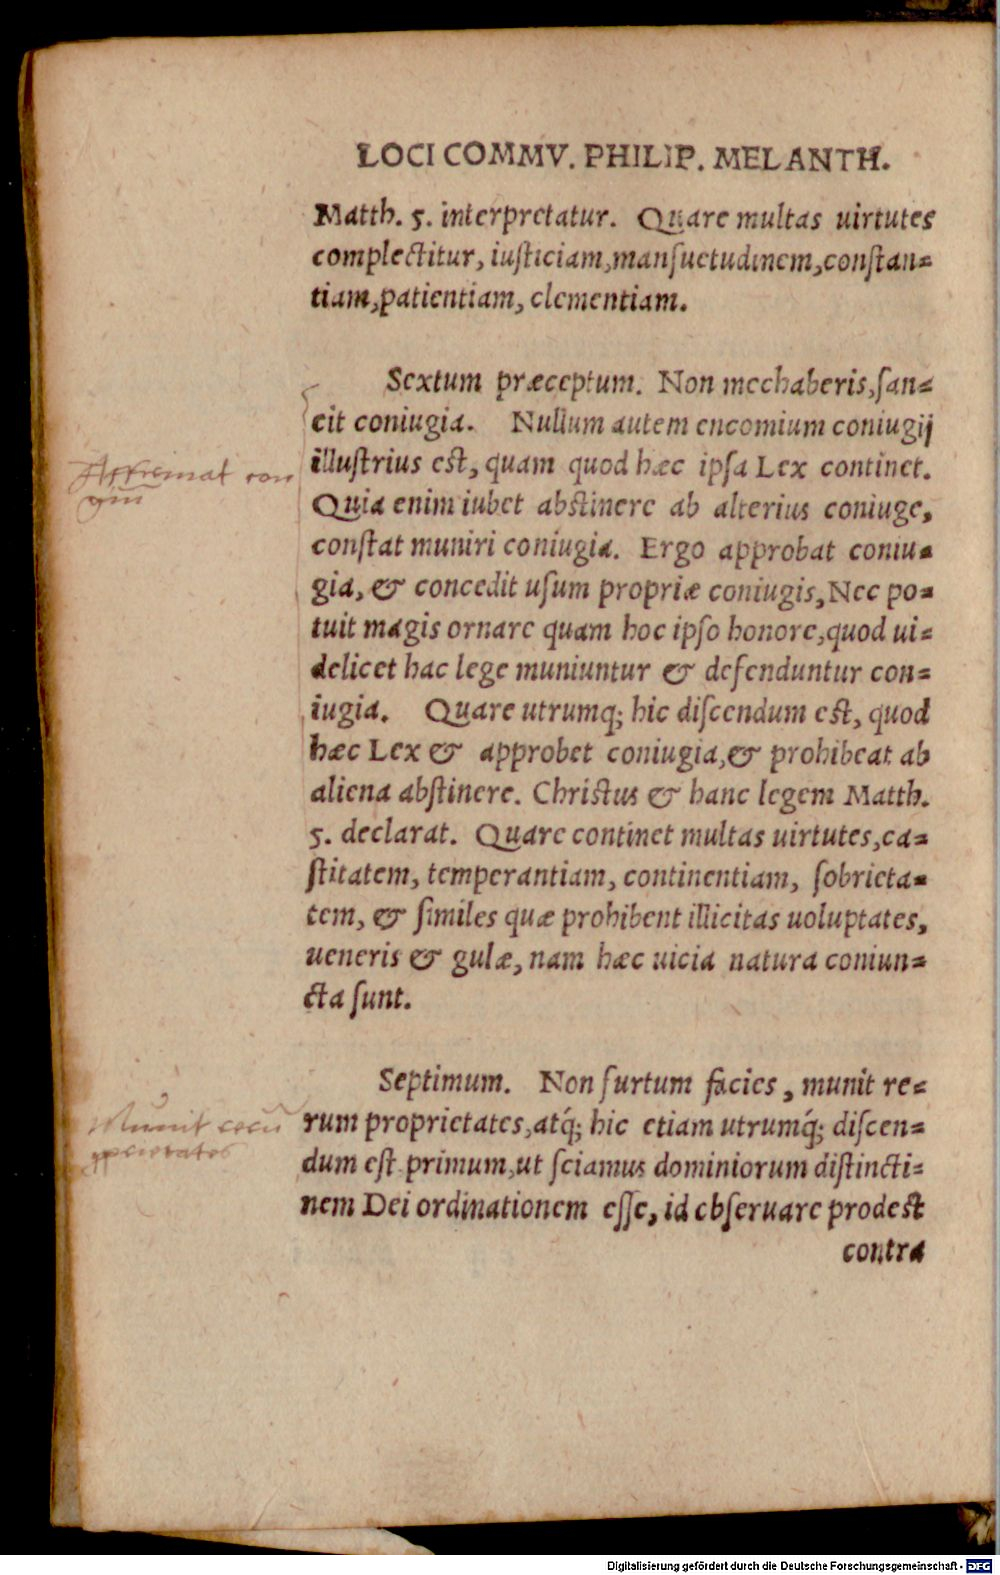 LOCI COMMV. PHILIP. MELANTH.
Matth. 5. interpretatur. Quare multas uirtutes
complectitur, iuſticiam, manſuetudinem, conſtan=
tiam, patientiam, clementiam.
Sextum præceptum. Non mechaberis, ſan=
cit coniugia. Nullum autem encomium coniugij
illuſtrius eſt, quam quod hæc ipſa Lex continet.
Quia enim iubet abſtinere ab alterius coniuge,
conſtat muniri coniugia. Ergo approbat coniu=
gia, & concedit uſum propriæ coniugis, Nec po=
tuit magis ornare quam hoc ipſo honore, quod ui=
delicet hac lege muniuntur & defenduntur con=
iugia. Quare utrumq; hic diſcendum eſt, quod
hæc Lex & approbet coniugia, & prohibeat ab
aliena abſtinere. Chriſtus & hanc legem Matth.
5. declarat. Quare continet multas uirtutes, ca=
ſtitatem, temperantiam, continentiam, ſobrieta=
tem, & ſimiles quæ prohibent illicitas uoluptates,
ueneris & gulæ, nam hæc uicia natura coniun=
cta ſunt.
Septimum. Non furtum facies, munit re=
rum proprietates, atq́; hic etiam utrumq́; diſcen=
dum eſt primum, ut ſciamus dominiorum diſtincti=
nem Dei ordinationem eſſe, id obſeruare prodeſt
contra
con
Munit
Digitalisierung gefördert durch die Deutsche Forschungsgemeinschaft - DFG